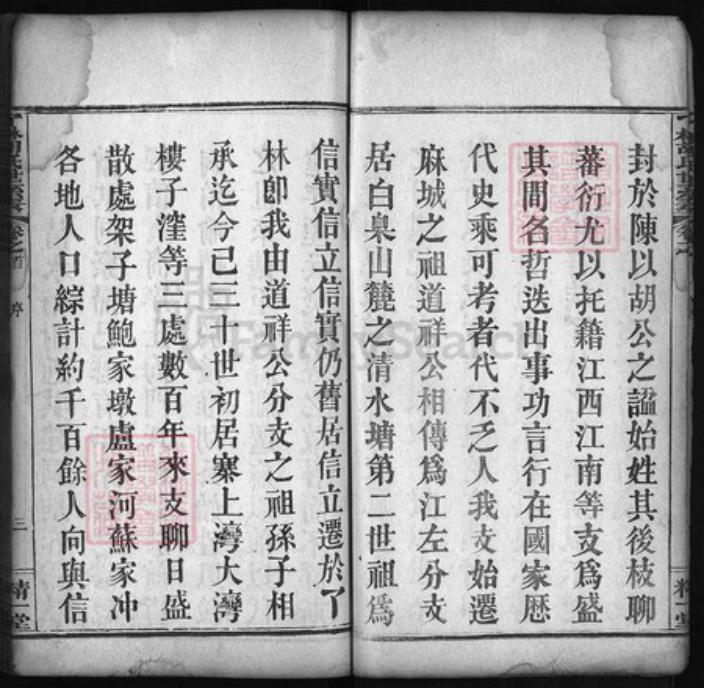 封於陳以胡公之諡始姓其後枝聊
蕃衍尤以托籍江西江南等支爲盛
其間名哲迭出事功言行在國家歷
代史乘可考者代不乏人我支始遷
麻城之祖道祥公相傳爲江左分支
居白臬山麓之清水塘第二世祖爲
信實信立信實仍舊居信立遷於丫
林卽我由道祥公分支之祖孫子相
承迄今已三十世初居寨上灣大灣
樓子漥等三處數百年來支聊日盛
散處架子塘鮑家墩盧家河蘇家冲
各地人口綜計約千百餘人向與信
序
三
精一堂
精一堂
FamilySearch